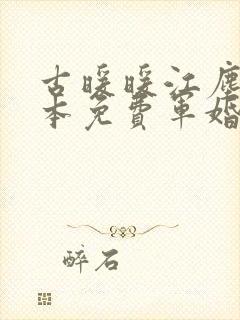 古暖暖江塵
本免費軍婚
醉石